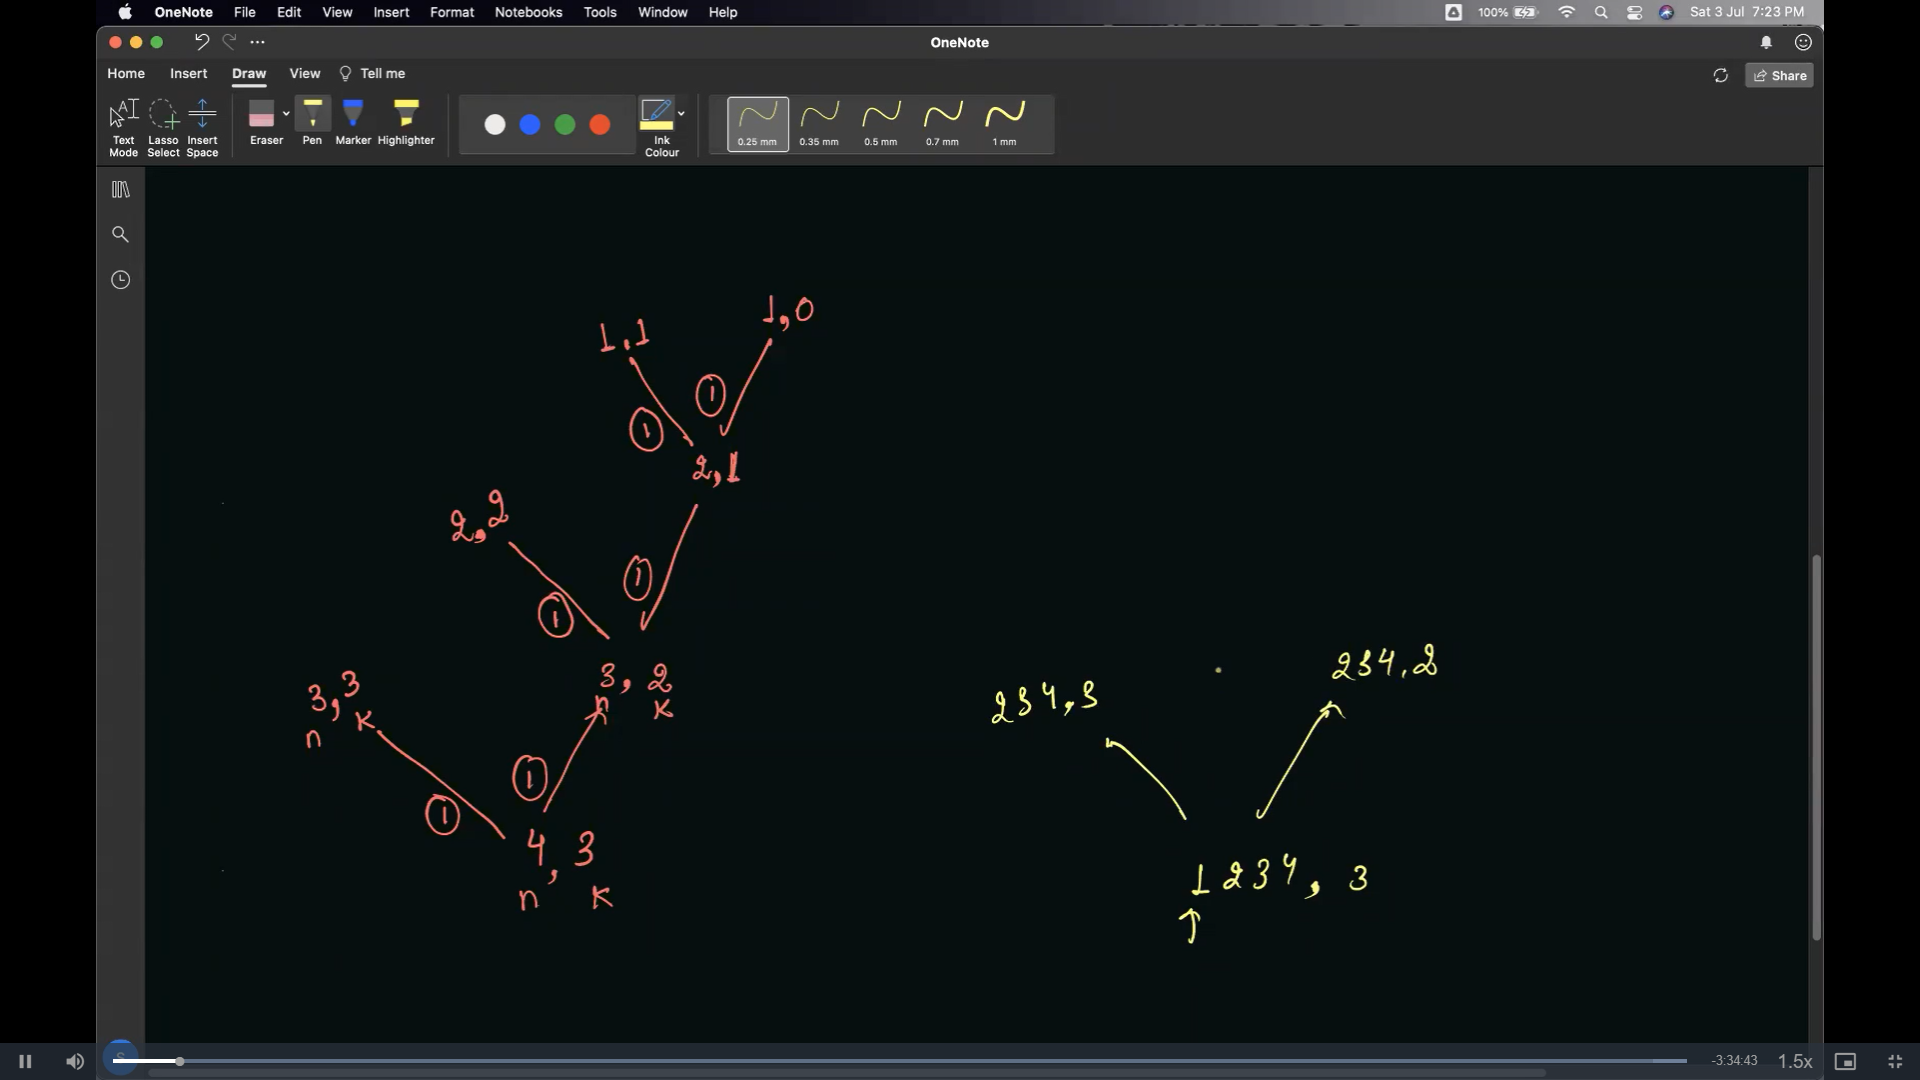 OneNote File Edit View Insert Format Notebooks Tools Window Help 100% Sat 3 Jul 7:23 PM
OneNote
Home Insert Draw View Tell me Share
Text Mode Lasso Select Insert Space Eraser Pen Marker Highlighter Ink Colour 0.25 mm 0.35 mm 0.5 mm 0.7 mm 1 mm
1,1 1,0
1 1
2,1
2,2
1 1
3,2
n k
3,3
n k
1 1
4,3
n k
234,3 234,2
1234, 3
-3:34:43 1.5x